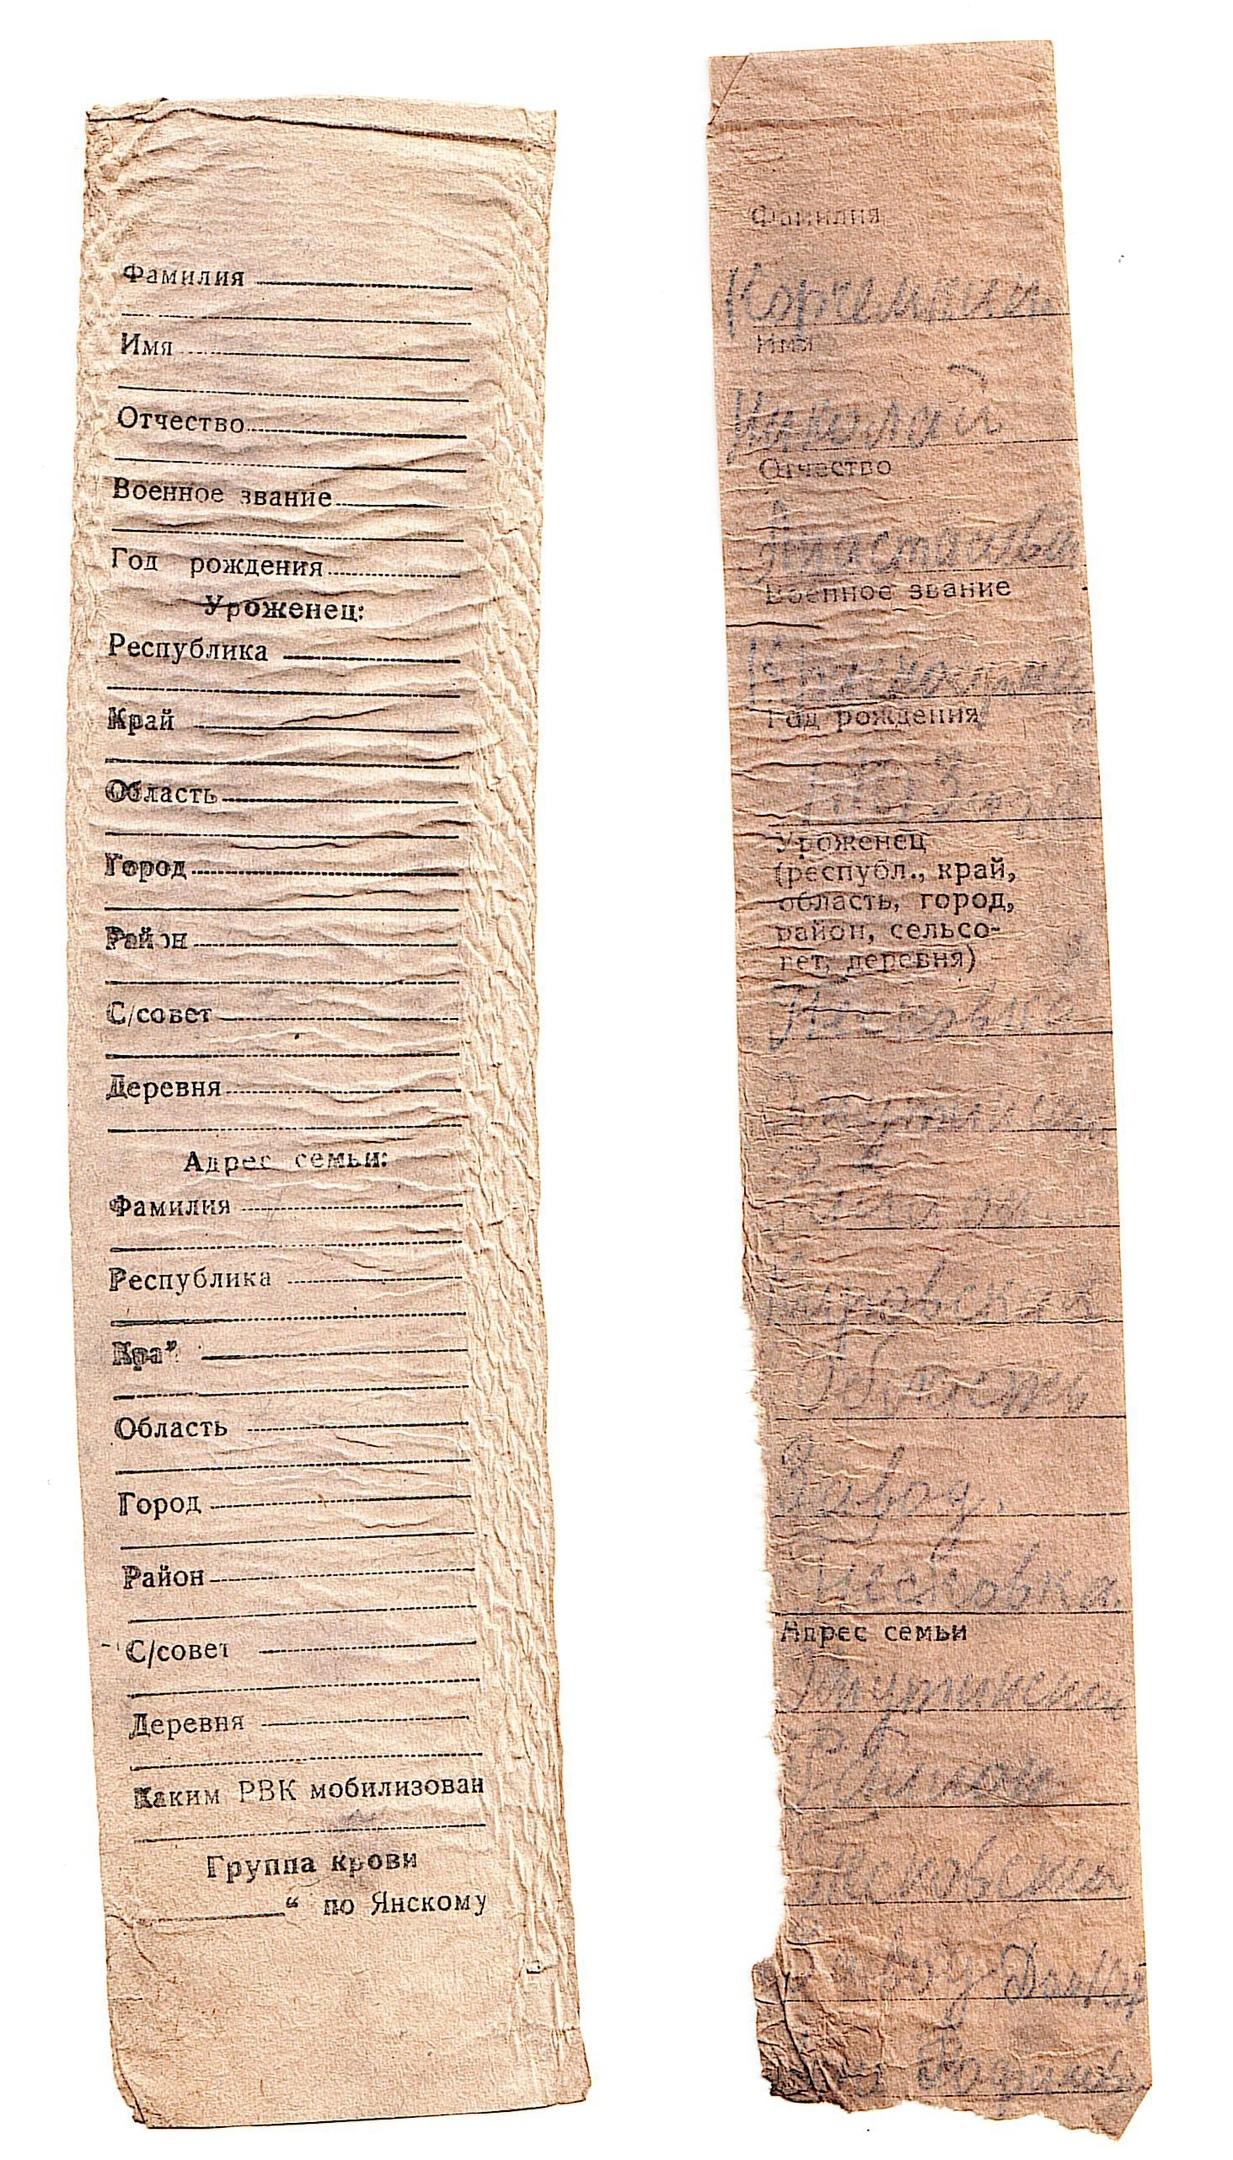 Фамилия
Имя
Отчество
Военное звание
Год рождения
Уроженец:
Республика
Край
Область
Город
Район
С/совет
Деревня
Адрес семьи:
Фамилия
Республика
Край
Область
Город
Район
С/совет
Деревня
Каким РВК мобилизован
Группа крови
“ по Янскому
Фамилия
Имя
Николай
Отчество
Военное звание
Год рождения
Уроженец
(республ., край,
область, город,
район, сельсо-
вет, деревня)
Район
Кировская
Область
Завод.
Песковка.
Адрес семьи
Омутнинский
Район
Песковский
Завод